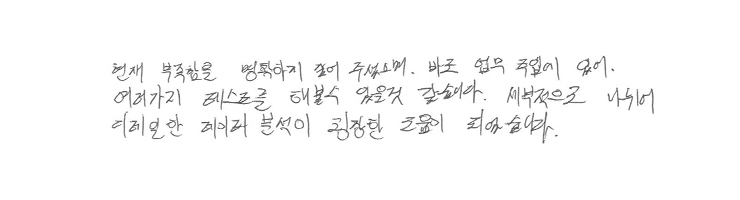 현재 부족함을 명확하게 짚어 주셨으며. 바로 업무 투입에 있어.
여러가지 테스트를 해볼수 있을것 같습니다. 세부적으로 나뉘어
디테일한 데이터 분석이 굉장한 도움이 되었습니다.